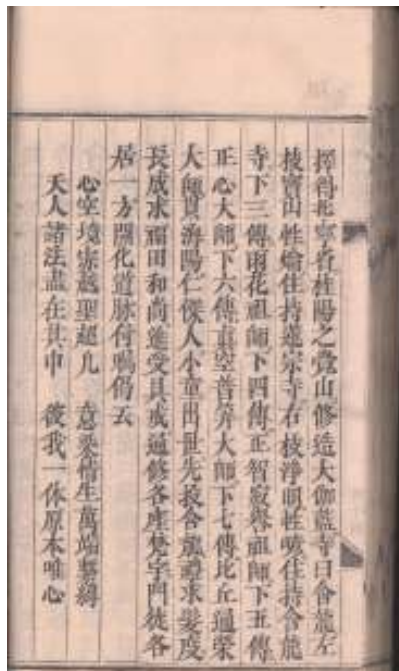 擇得北寧省桂陽之鶯山修造大伽藍寺曰會龍左
枝寶山性燴住持蓮宗寺右枝淨明性噯住持含龍
寺下三傳雨花祖師下四傳正智寂譽祖師下五傳
正心大師下六傳真空普萍大師下七傳比丘通榮
大師貫海陽仁傑人小童出世先投含龍禮求髮度
長成求福田和尚進受具戒通修各座梵宇門徒各
居一方闡化道脉何囑偈云
心空境寂越聖超凡 意染情生萬端繫縛
天人諸法盡在其中 彼我一体原本唯心